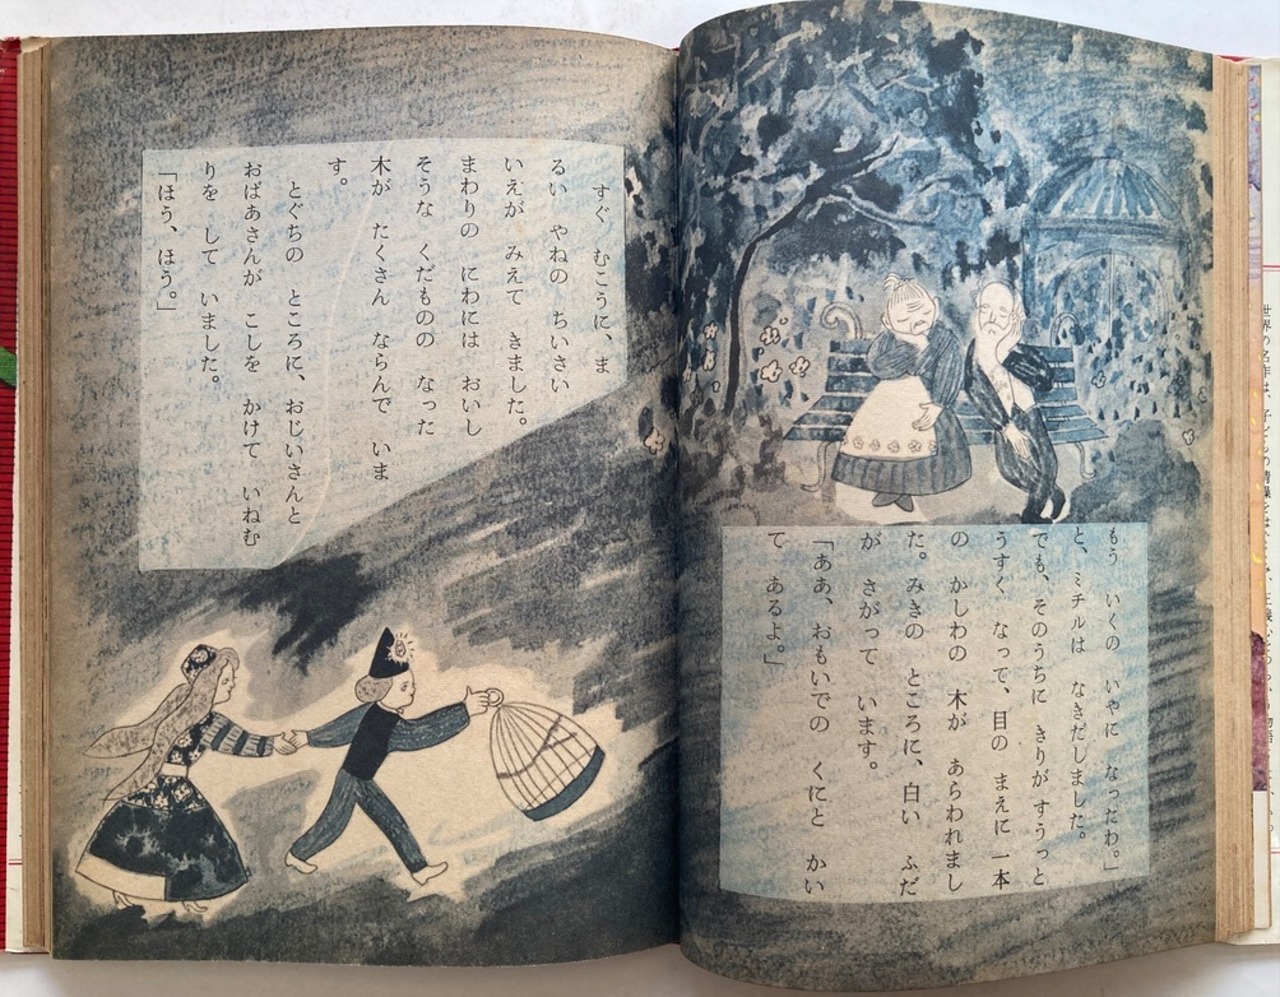 もう いくの いやに なったわ。」
と、ミチルは なきだしました。
でも、そのうちに きりが すうっと
うすく なって、目の まえに 一本
の かしわの 木が あらわれまし
た。みきの ところに、白い ふだ
が さがって います。
「ああ、おもいでの くにと かい
て あるよ。」
すぐ むこうに、ま
るい やねの ちいさい
いえが みえて きました。
まわりの にわには おいし
そうな くだものの なった
木が たくさん ならんで いま
す。
とぐちの ところに、おじいさんと
おばあさんが こしを かけて いねむ
りを して いました。
「ほう、ほう。」
世界の名作は、子どもの情操を